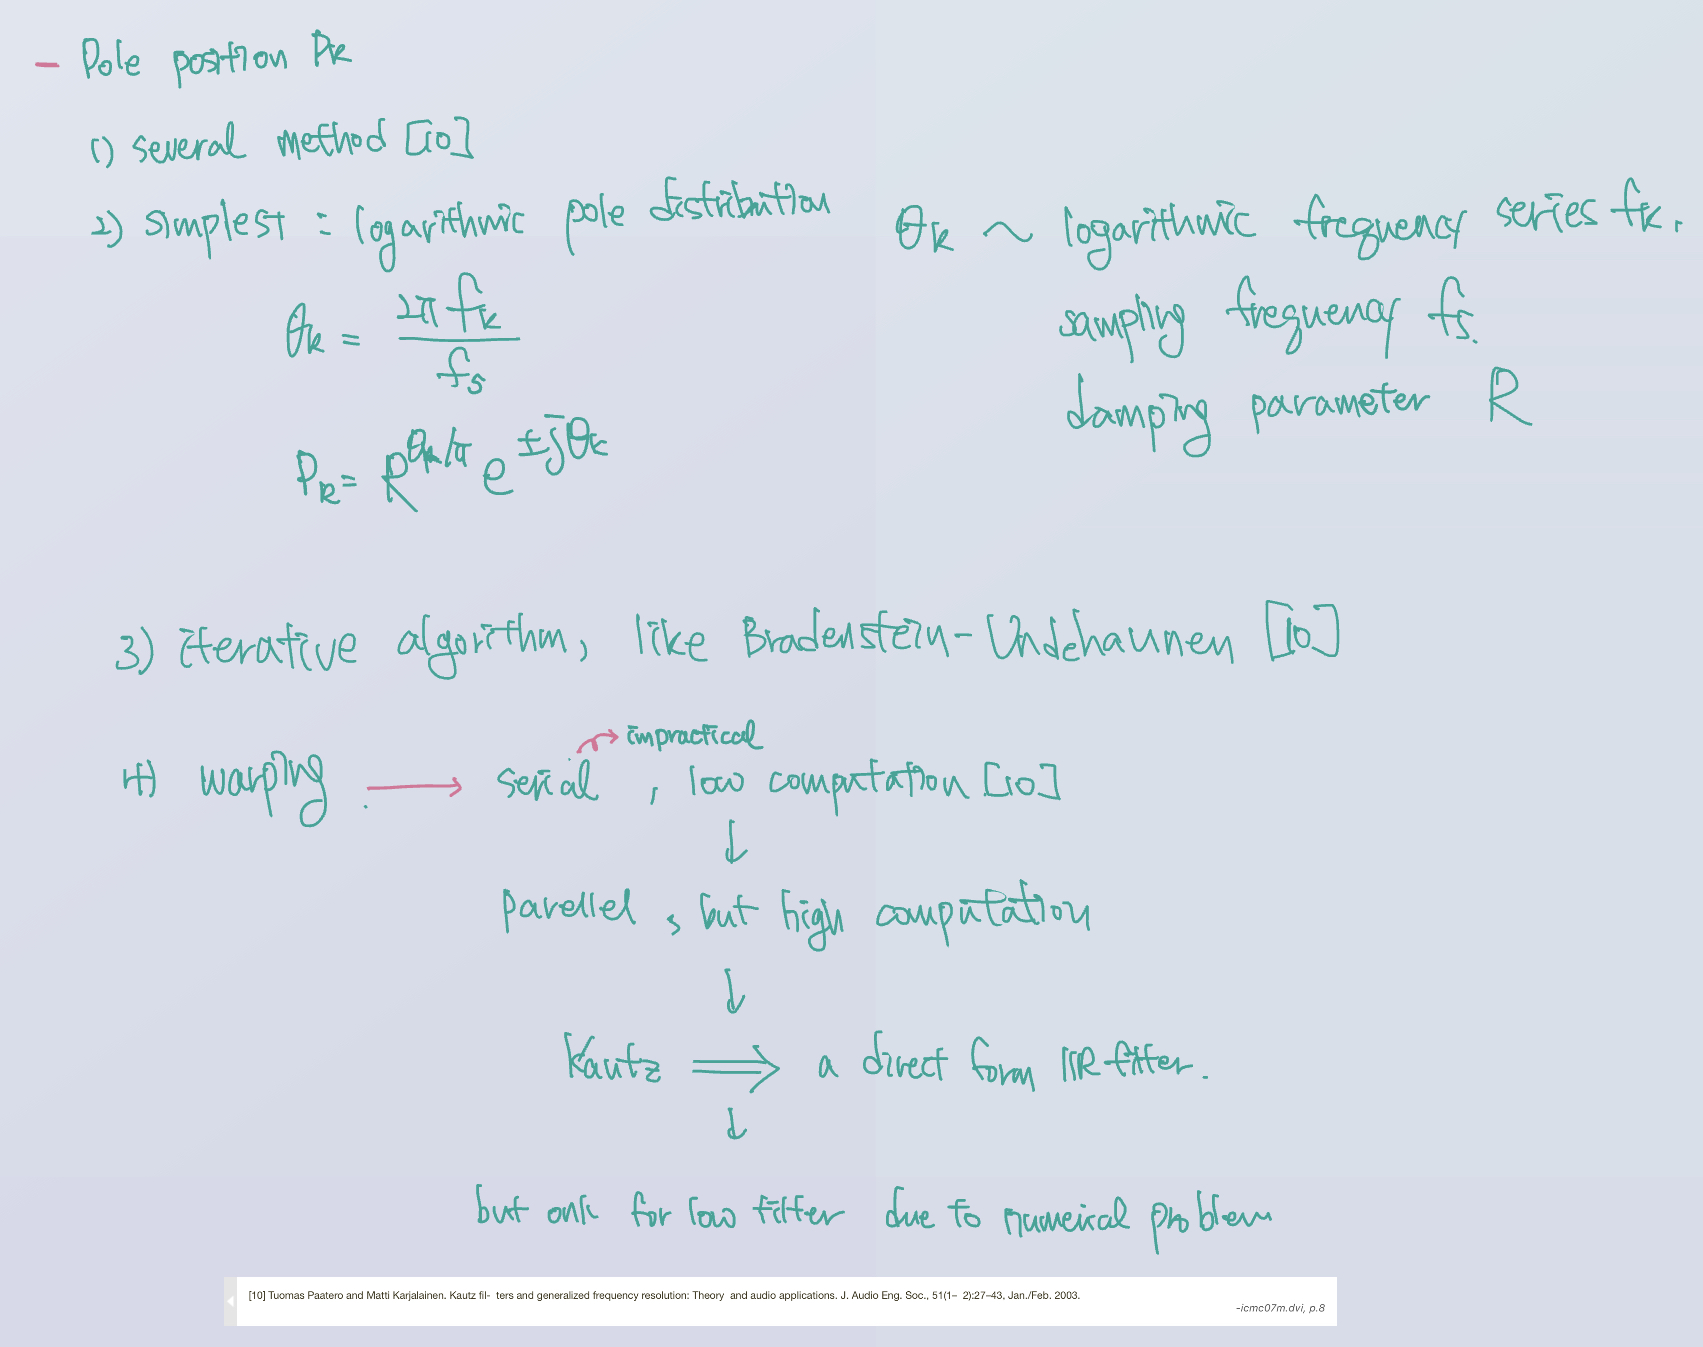 - Pole position Pk
1) several method [10]
2) simplest : logarithmic pole distribution
θk = 2π fk / fs
Pk = R^θk/π e^±jθk
θk ~ logarithmic frequency series fk.
sampling frequency fs.
damping parameter R
3) iterative algorithm, like Bradenstein-Undehaunen [10]
4) warping → serial , low computation [10]
impractical
↓
parellel , but high computation
↓
Kautz ⇒ a direct form IIR filter.
↓
but only for low filter due to numeirical problem
[10] Tuomas Paatero and Matti Karjalainen. Kautz fil- ters and generalized frequency resolution: Theory and audio applications. J. Audio Eng. Soc., 51(1– 2):27–43, Jan./Feb. 2003.
-icmc07m.dvi, p.8